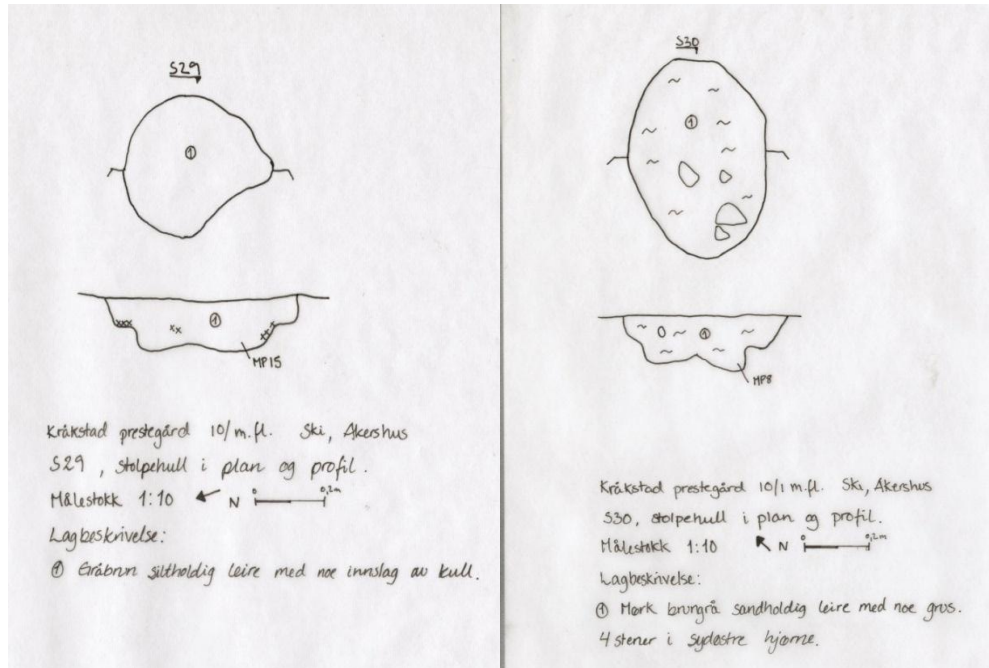 S29
①
①
MP15
Kråkstad prestegård 10/m.fl. Ski, Akershus
S29, stolpehull i plan og profil.
Målestokk 1:10 N 0 0,2m
Lagbeskrivelse:
① Gråbrun siltholdig leire med noe innslag av kull.
S30
①
①
MP8
Kråkstad prestegård 10/1 m.fl. Ski, Akershus
S30, stolpehull i plan og profil.
Målestokk 1:10 N 0 0,2m
Lagbeskrivelse:
① Mørk brungrå sandholdig leire med noe grus.
4 stener i sydøstre hjørne.